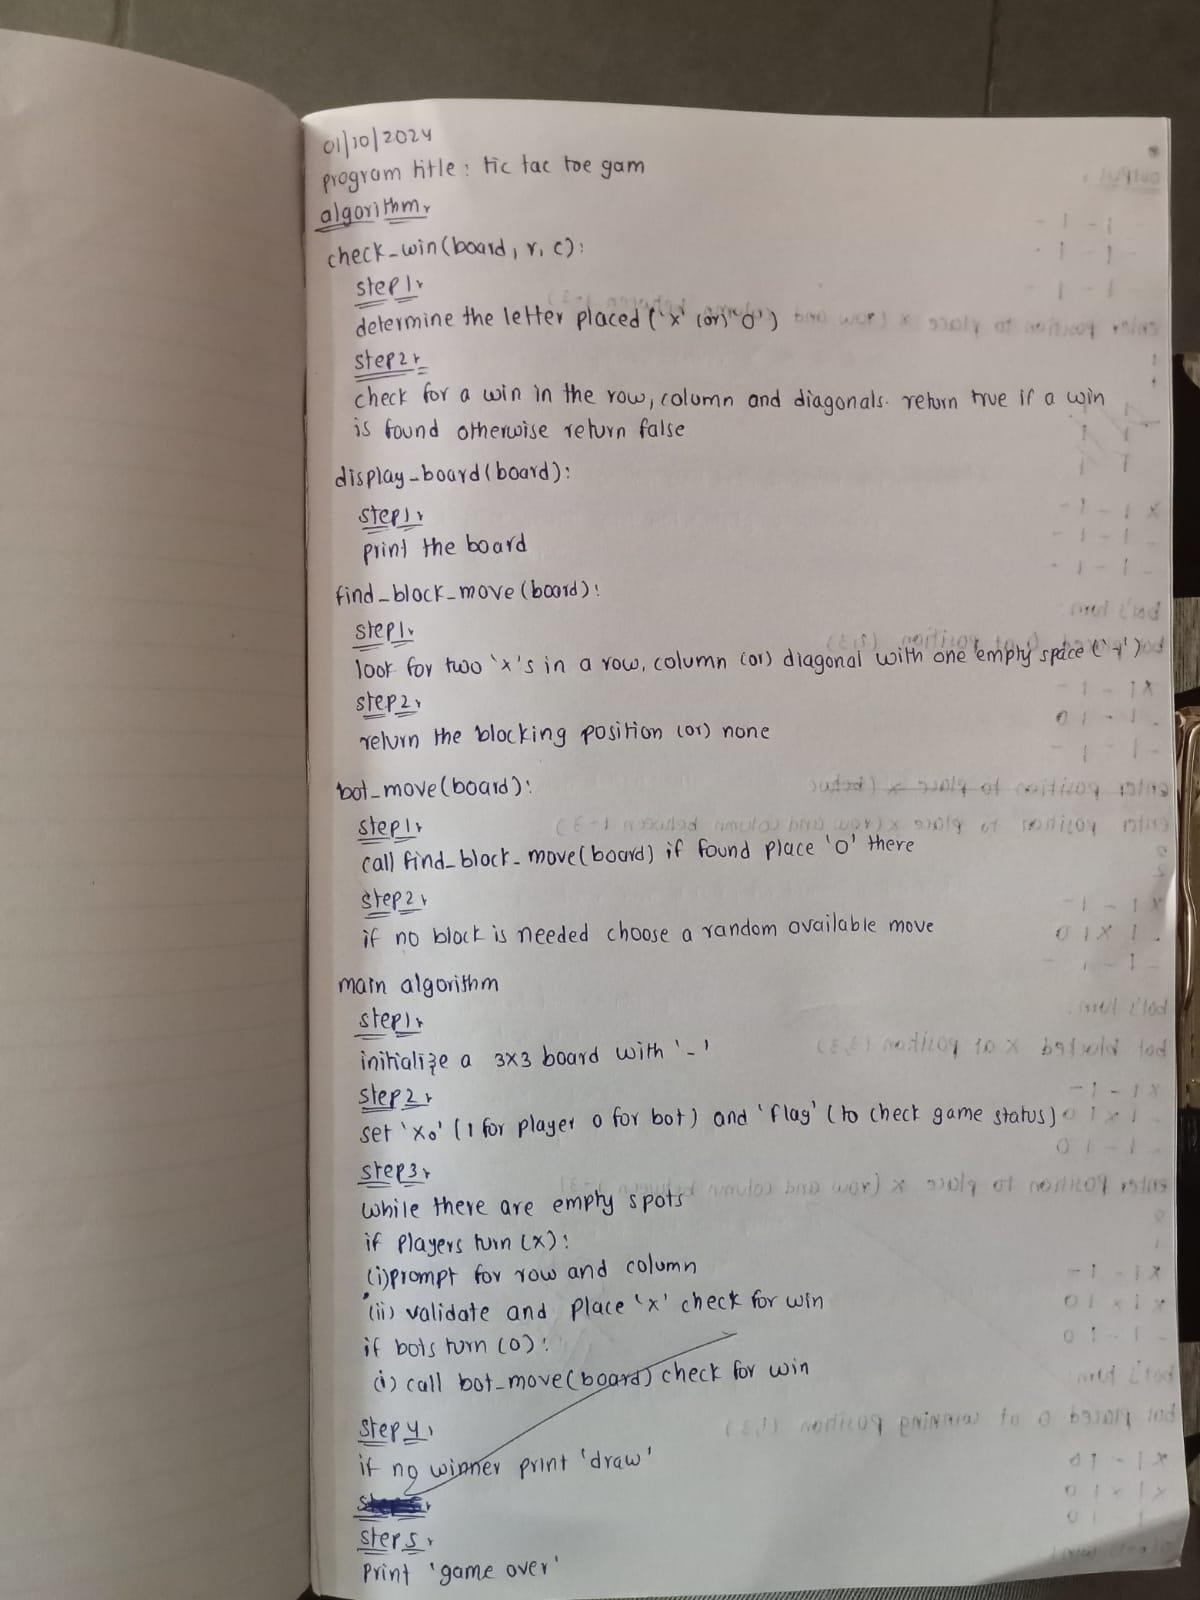 01/10/2024
program title: tic tac toe gam
algorithm:
check_win(board, r, c):
step1:
determine the letter placed ('x' (or) "o")
step2:
check for a win in the row, column and diagonals. return true if a win
is found otherwise return false
display_board(board):
step1:
print the board
find_block_move(board):
step1:
look for two 'x's in a row, column (or) diagonal with one empty space ('-')
step2:
return the blocking position (or) none
bot_move(board):
step1:
call find_block_move(board) if found place 'o' there
step2:
if no block is needed choose a random available move
main algorithm
step1:
initialize a 3x3 board with '-'
step2:
set 'xo' (1 for player 0 for bot) and 'flag' (to check game status)
step3:
while there are empty spots
if players turn (x):
(i)prompt for row and column
(ii) validate and place 'x' check for win
if bots turn (o):
(i) call bot_move(board) check for win
step4:
if no winner print 'draw'
step5:
print 'game over'